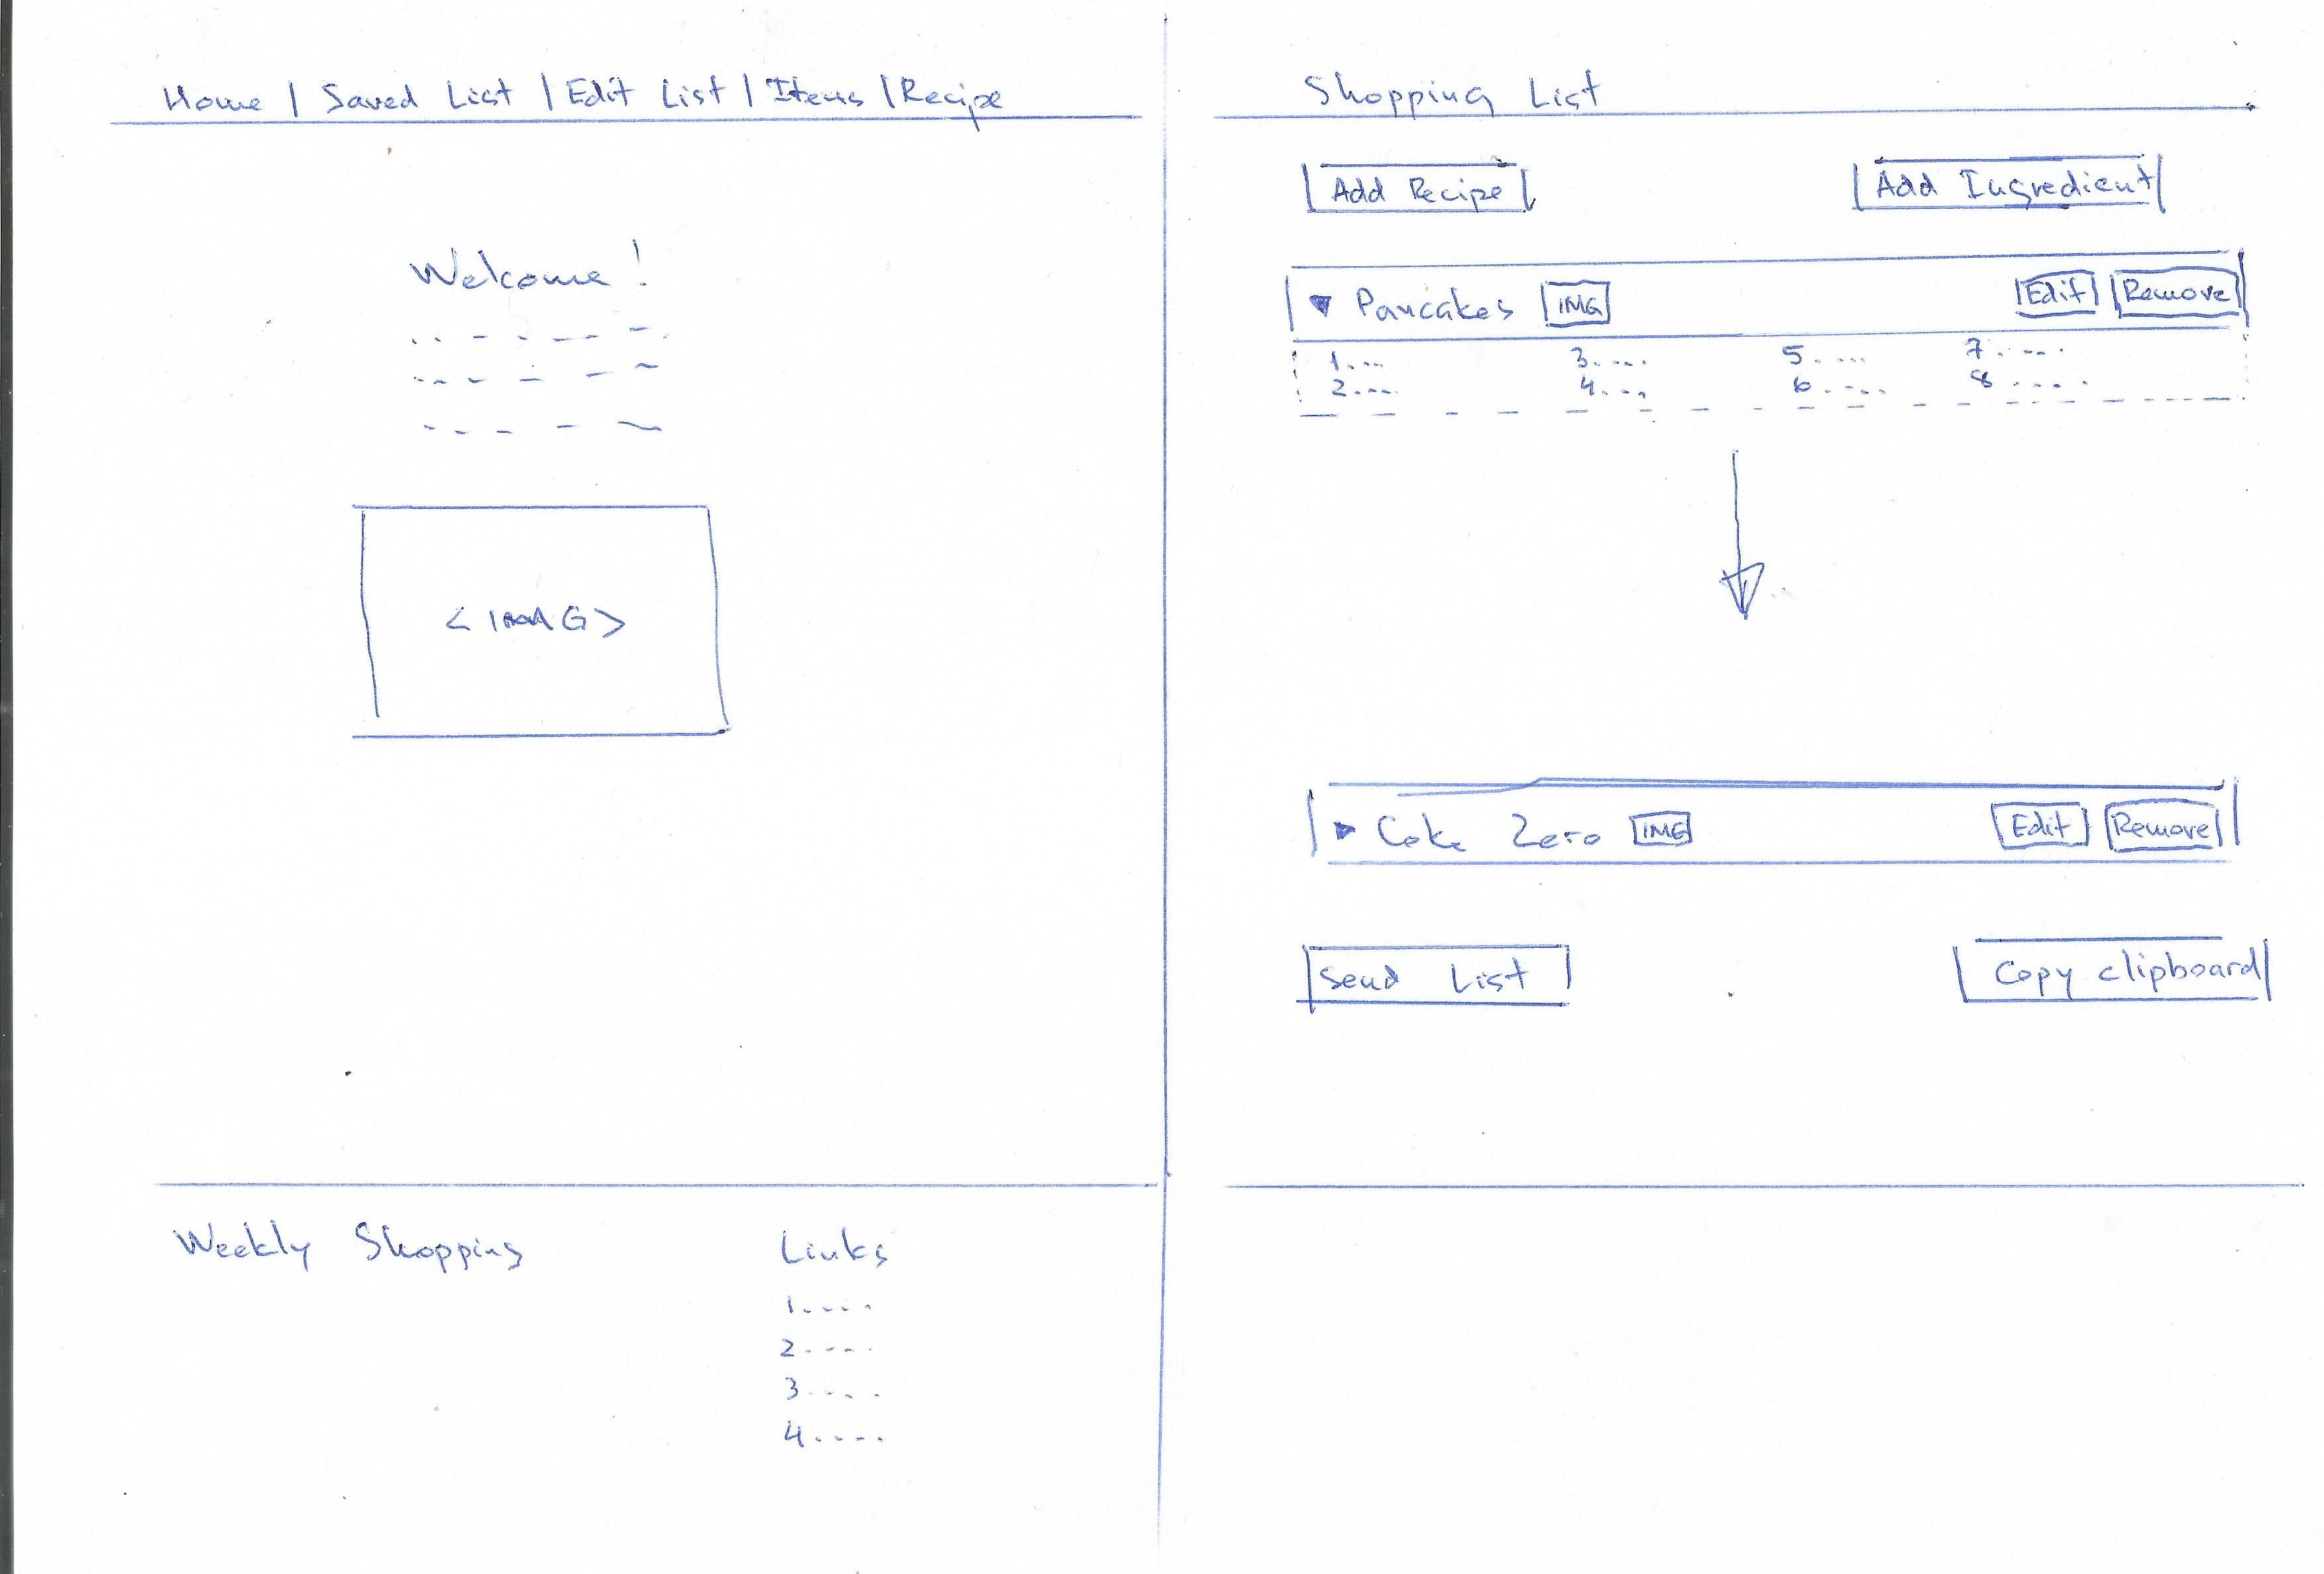 Home | Saved List | Edit List | Items | Recipe
Welcome!
<IMG>
Weekly Shopping
Links
1.....
2.....
3.....
4.....
Shopping List
Add Recipe
Add Ingredient
Pancakes IMG Edit Remove
1.... 3..... 5..... 7.....
2.... 4.... 6..... 8.....
Coke Zero IMG Edit Remove
Send List
Copy clipboard